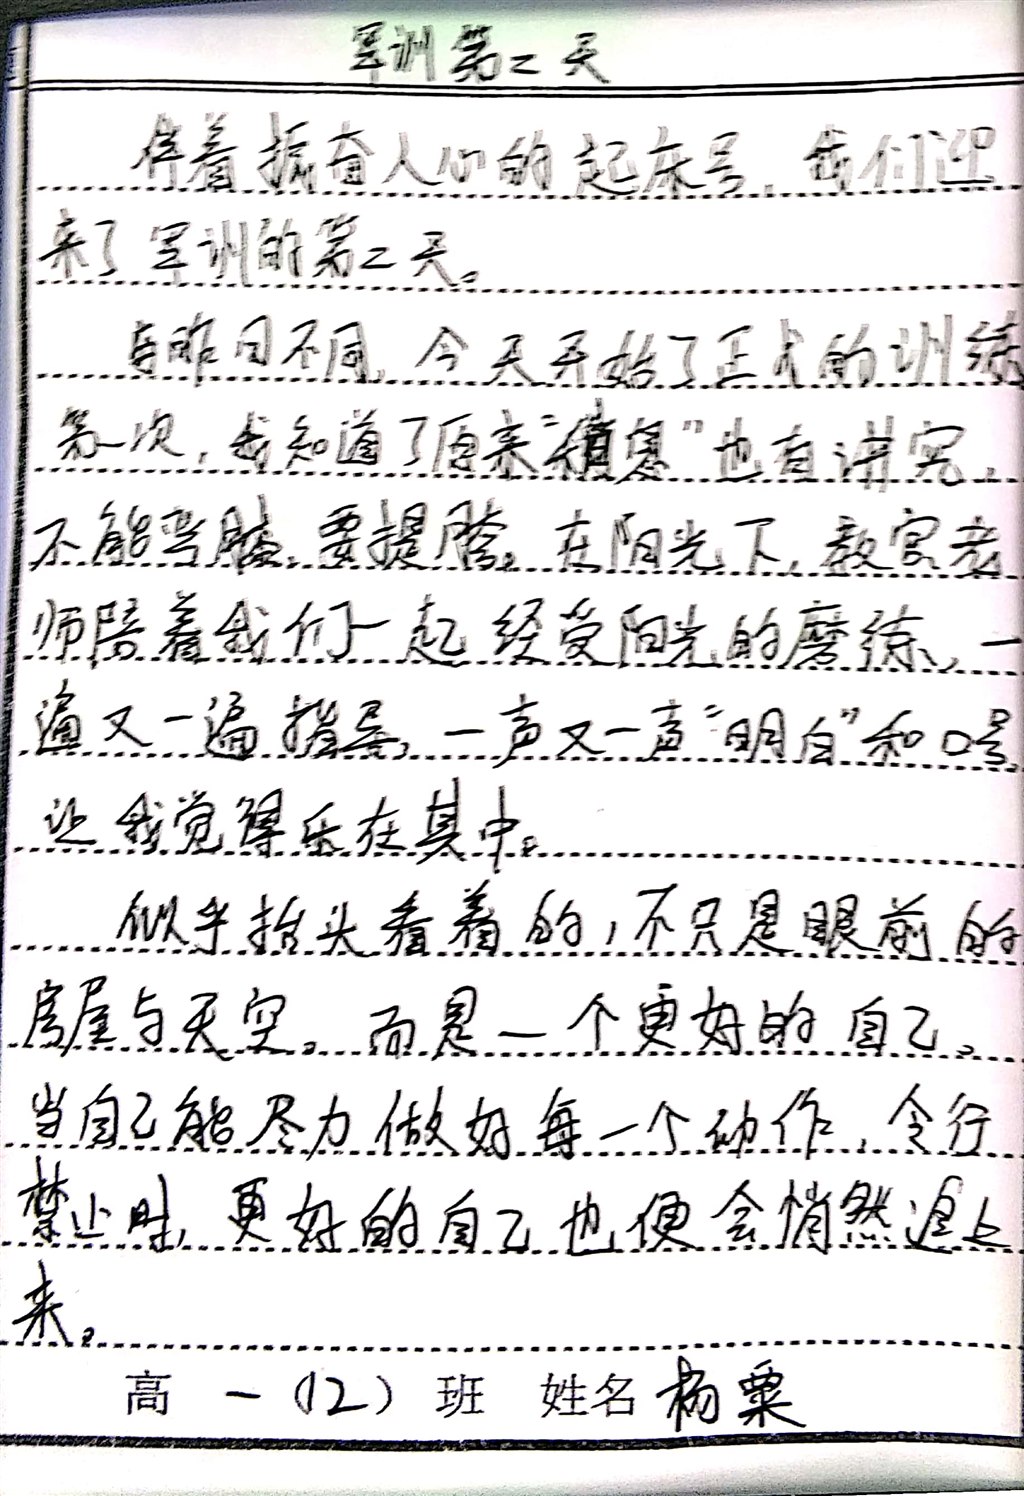 军训第二天
伴着振奋人心的起床号，我们迎
来了军训的第二天。
与昨日不同，今天开始了正式的训练
第一次，我知道了原来“稍息”也有讲究，
不能弯膝，要提胯。在阳光下，教官老
师陪着我们一起经受阳光的磨练，一
遍又一遍指导，一声又一声“明白”和口号，
让我觉得乐在其中。
似乎抬头看着的，不只是眼前的
房屋与天空。而是一个更好的自己。
当自己能尽力做好每一个动作，令行
禁止时，更好的自己也便会悄然追上
来。
高一（12）班 姓名 杨粟